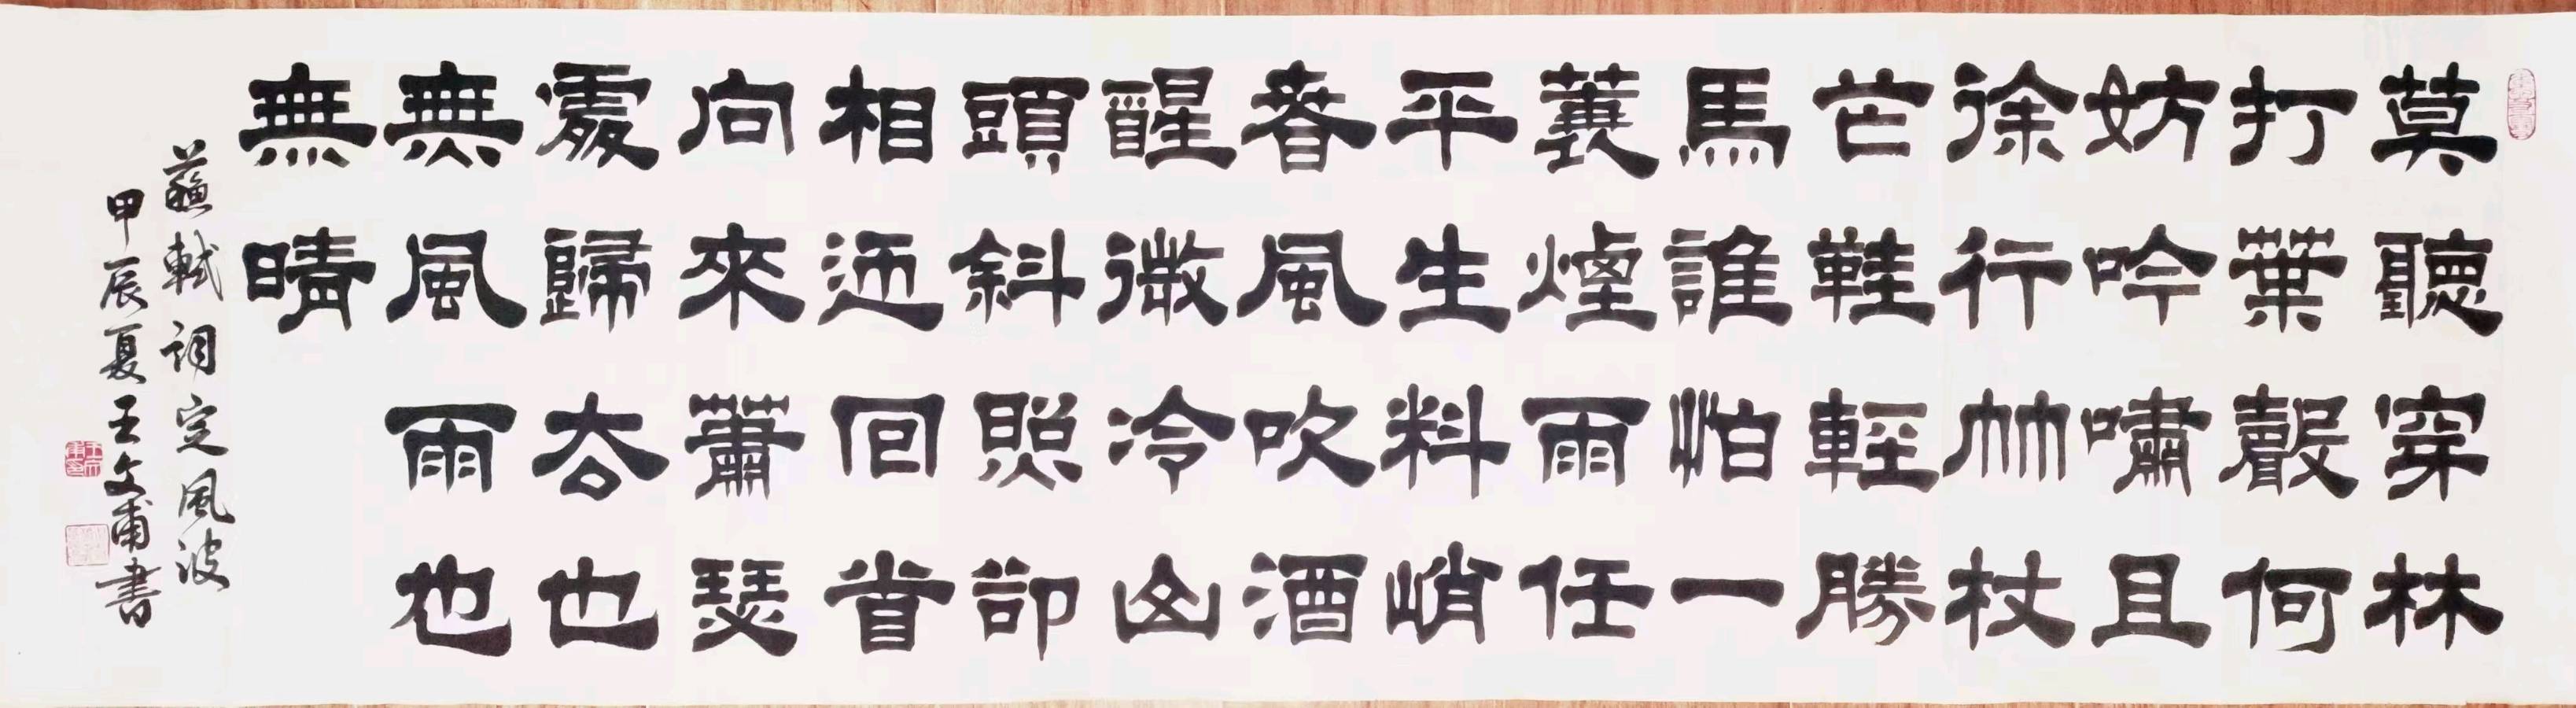 莫聽穿林
打葉聲何
妨吟嘯且
徐行竹杖
芒鞋輕勝
馬誰怕一
蓑煙雨任
平生料峭
春風吹酒
醒微冷山
頭斜照卻
相迎回首
向來蕭瑟
處歸去也
無風雨也
無晴
蘇軾詞定風波
甲辰夏王文甫書